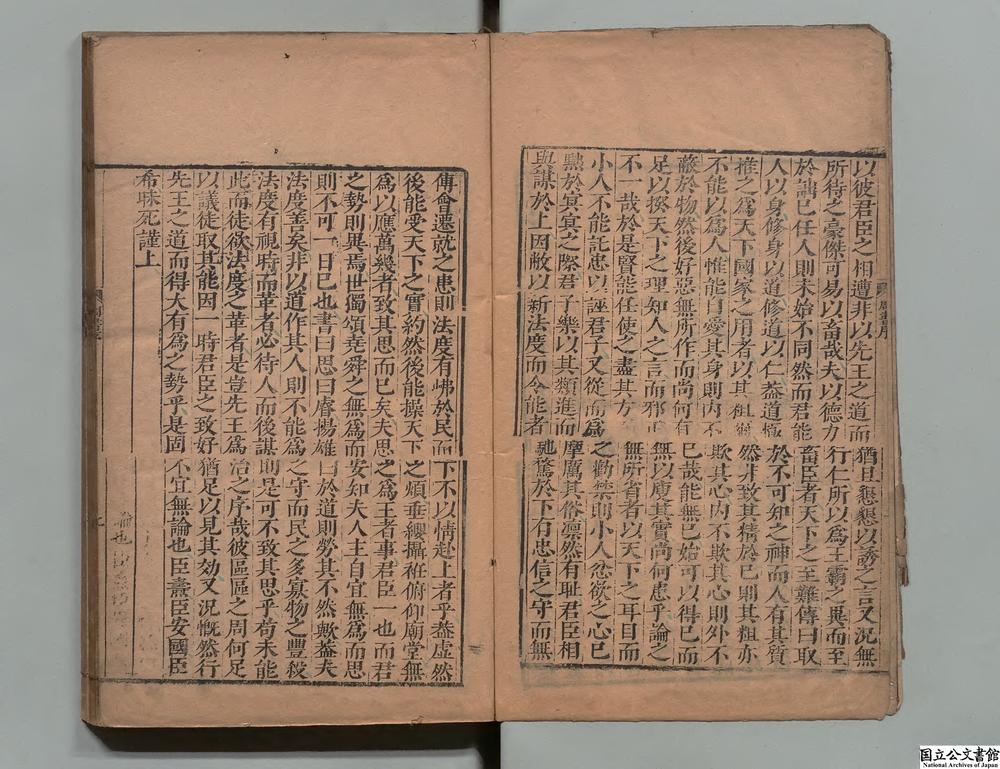 周書序
以彼君臣之相遭非以先王之道而猶且懇懇以誘之言又況無
所待之豪傑可易以畜哉夫以德力行仁所以爲王霸之異而至
於詘已任人則未始不同然而君能畜臣者天下之至難傳曰取
人以身修身以道修道以仁蓋道極於不可知之神而人有其質
推之爲天下國家之用者以其粗爾然非致其精於已則其粗亦
不能以爲人惟能自愛其身則内不欺其心内不欺其心則外不
蔽於物然後好惡無所作而尚何有已哉能無已始可以得已而
足以揆天下之理知人之言而邪正無以廋其實尚何患乎論之
不一哉於是賢能任使之盡其方無所省者以天下之耳目而
小人不能託忠以誣君子又從而爲之勸禁則小人忿欲之心已
黙於冥冥之際君子樂以其類進而摩厲其俗凛然有恥君臣相
與謀於上因敝以新法度而令能者馳騖於下有忠信之守而無
傅會遷就之患則法度有弗於民而下不以情赴上者乎蓋虚然
後能受天下之實約然後能操天下之煩垂纓攝袵俯仰廟堂無
爲以應萬幾者致其思而已矣夫思之爲王者事君臣一也而君
之勢則異焉世獨頌堯舜之無爲而安知夫人主自宜無爲而思
則不可一日已也書曰思曰睿揚雄曰於道則勞其不然歟蓋夫
法度善矣非以道作其人則不能爲之守而民之多寡物之豐殺
法度有視時而革者必待人而後謀則是可不致其思乎苟未能
此而徒欲法度之革者是豈先王爲治之序哉彼區區之周何足
以議徒取其能因一時君臣之致好猶足以見其効又況慨然行
先王之道而得大有爲之勢乎是固不宜無論也臣燾臣安國臣
希昧死謹上
国立公文書館
National Archives of Japan